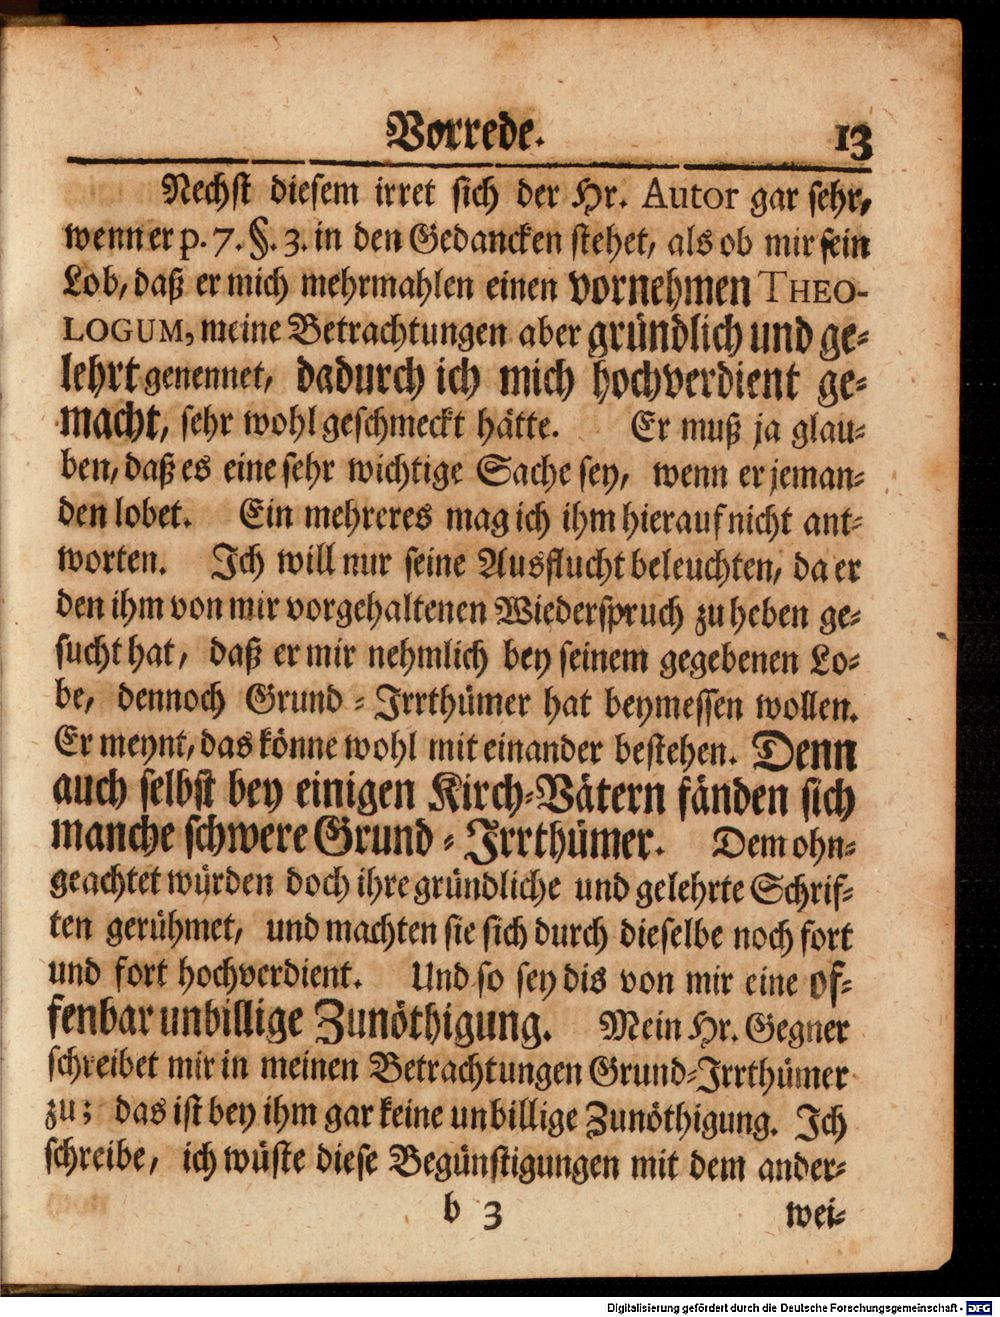 Vorrede. 13
Nechst diesem irret sich der Hr. Autor gar sehr,
wenn er p. 7. §. 3. in den Gedancken stehet, als ob mir sein
Lob, daß er mich mehrmahlen einen vornehmen THEO-
LOGUM, meine Betrachtungen aber gründlich und ge-
lehrt genennet, dadurch ich mich hochverdient ge-
macht, sehr wohl geschmeckt hätte. Er muß ja glau-
ben, daß es eine sehr wichtige Sache sey, wenn er jeman-
den lobet. Ein mehreres mag ich ihm hierauf nicht ant-
worten. Ich will nur seine Ausflucht beleuchten, da er
den ihm von mir vorgehaltenen Wiederspruch zu heben ge-
sucht hat, daß er mir nehmlich bey seinem gegebenen Lo-
be, dennoch Grund-Irrthümer hat beymessen wollen.
Er meynt, das könne wohl mit einander bestehen. Denn
auch selbst bey einigen Kirch-Vätern fänden sich
manche schwere Grund-Irrthümer. Dem ohn-
geachtet würden doch ihre gründliche und gelehrte Schrif-
ten gerühmet, und machten sie sich durch dieselbe noch fort
und fort hochverdient. Und so sey dis von mir eine of-
fenbar unbillige Zunöthigung. Mein Hr. Gegner
schreibet mir in meinen Betrachtungen Grund-Irrthümer
zu; das ist bey ihm gar keine unbillige Zunöthigung. Ich
schreibe, ich wüste diese Begünstigungen mit dem ander-
b 3 wei-
Digitalisierung gefördert durch die Deutsche Forschungsgemeinschaft - DFG